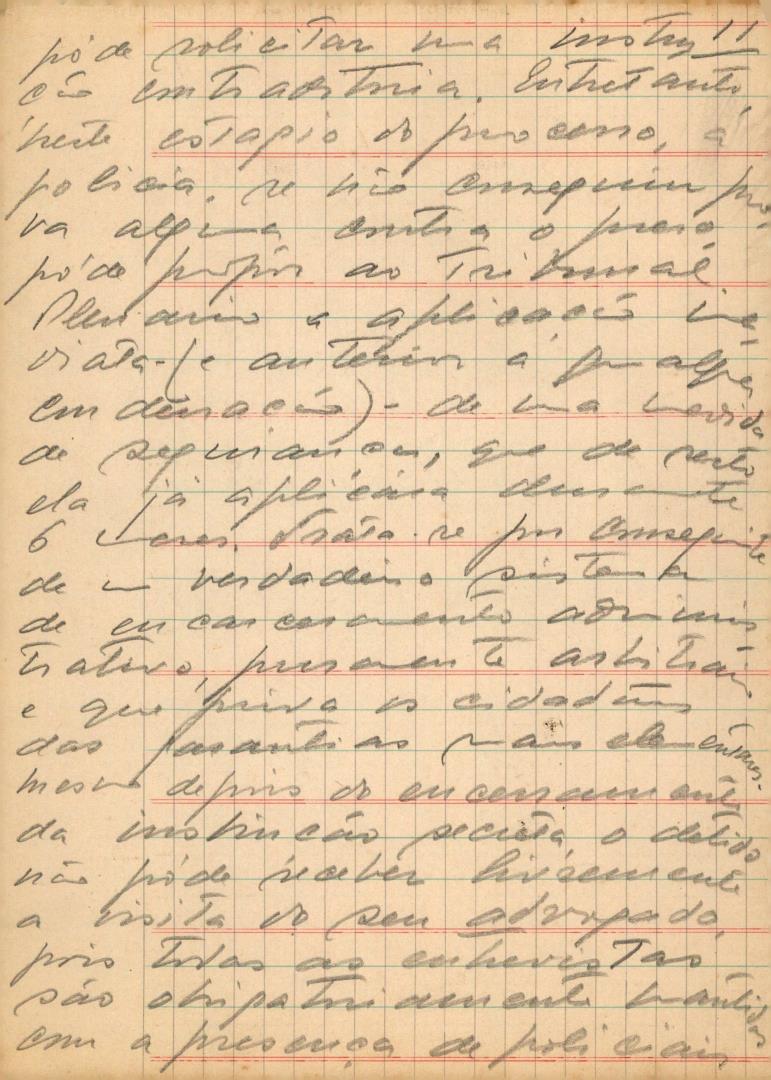 11
póde solicitar uma instru
ção contraditoria. Entretanto,
neste estagio do processo, a
policia, se não conseguiu pro-
va alguma contra o preso,
póde propôr ao Tribunal
Plenario a aplicação ime-
diata - (e anterior a qualquer
condenação) - de uma medida
de segurança, que de resto
ela já aplicára durante
6 meses. Trata-se por conseguinte
de um verdadeiro sistema
de encarceramento adminis
trativo, puramente arbitrário
e que priva os cidadãos
das garantias mais elementares.
Mesmo depois do encerramento
da instrucção secreta, o detido
não póde receber livremente
a visita do seu advogado,
pois todas as entrevistas
são obrigatoriamente mantidas
com a presença de policiais